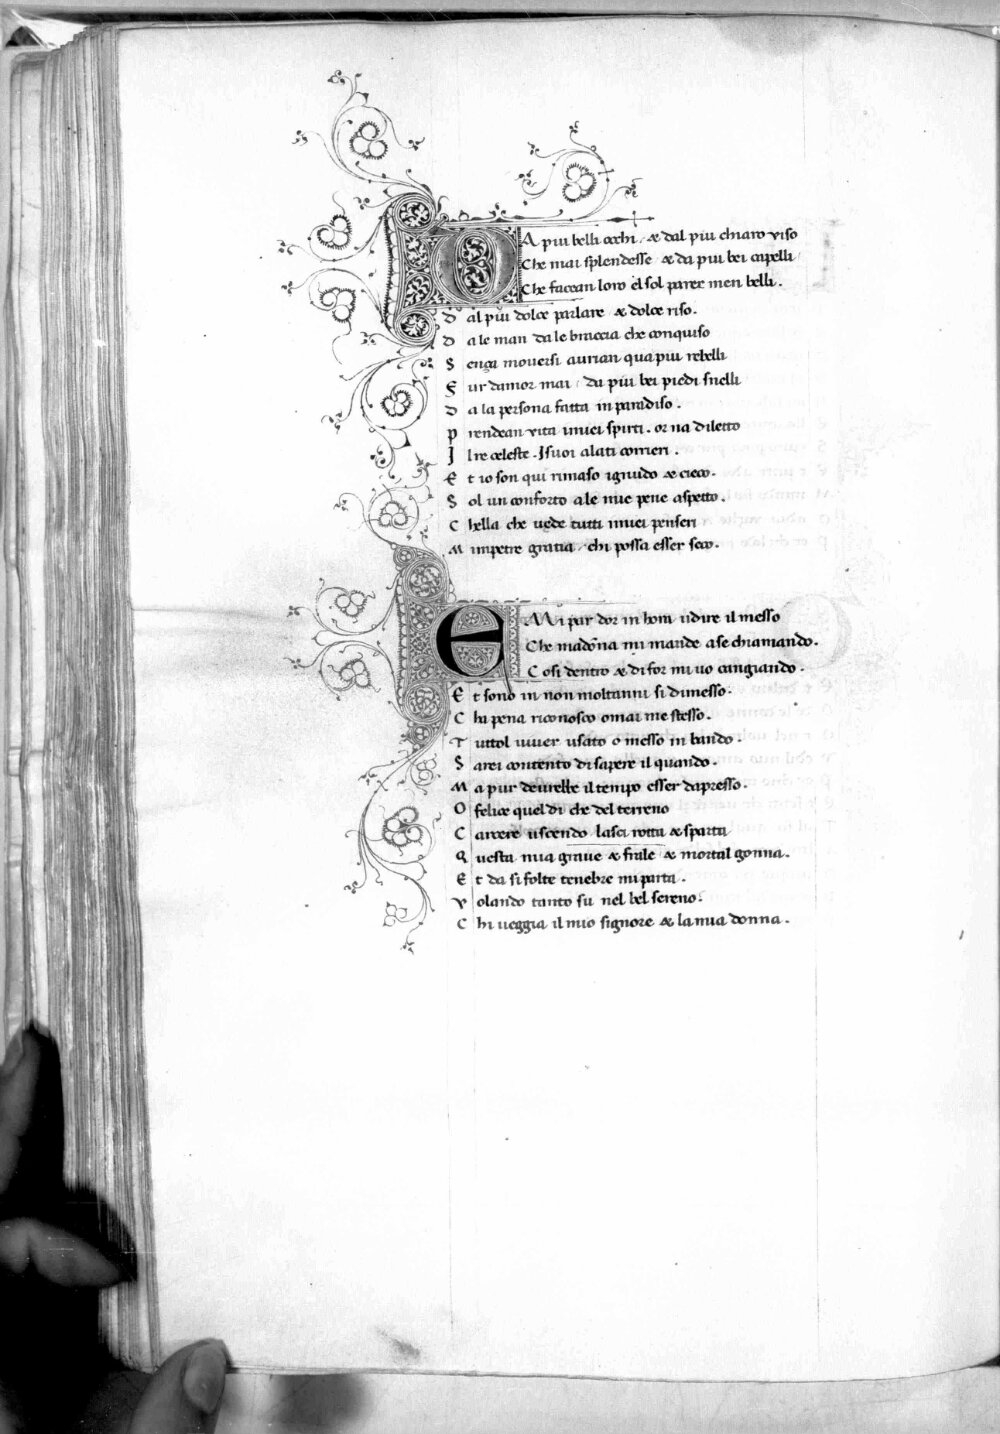 DA piu belli occhi, & dal piu chiaro viso
Che mai splendesse & da piu bei capelli
Che faccan loro el sol parer men belli.
D al piu dolce parlare & dolce riso.
D a le man da le braccia che conquiso
Sença mouersi aurian qua piu rebelli
F ur damor mai, da piu bei piedi snelli
D a la persona fatta in paradiso.
P rendean vita imiei spirti. or na diletto
I l re celeste. I suoi alati corrieri.
E t io son qui rimaso ignudo & cieco.
S ol un conforto a le mie pene aspetto.
C hella che uede tutti imiei penseri
M impetre gratia, chi possa esser seco.
EMi par dor in hora udire il messo
Che madōna mi mande a se chiamando.
C osi dentro & di for mi uo cangiando.
E t sono in non moltanni si dimesso.
C ha pena riconosco omai me stesso.
T uttol uiuer usato o messo in bando.
S arei contento di sapere il quando.
M a pur deurebbe il tempo esser dapresso.
O felice quel di che del terreno
C arcere uscendo lasci rotta & sparta
Q uesta mia graue & frale & mortal gonna.
E t da si folte tenebre mi parta.
V olando tanto su nel bel sereno.
C hi ueggia il mio signore & la mia donna.